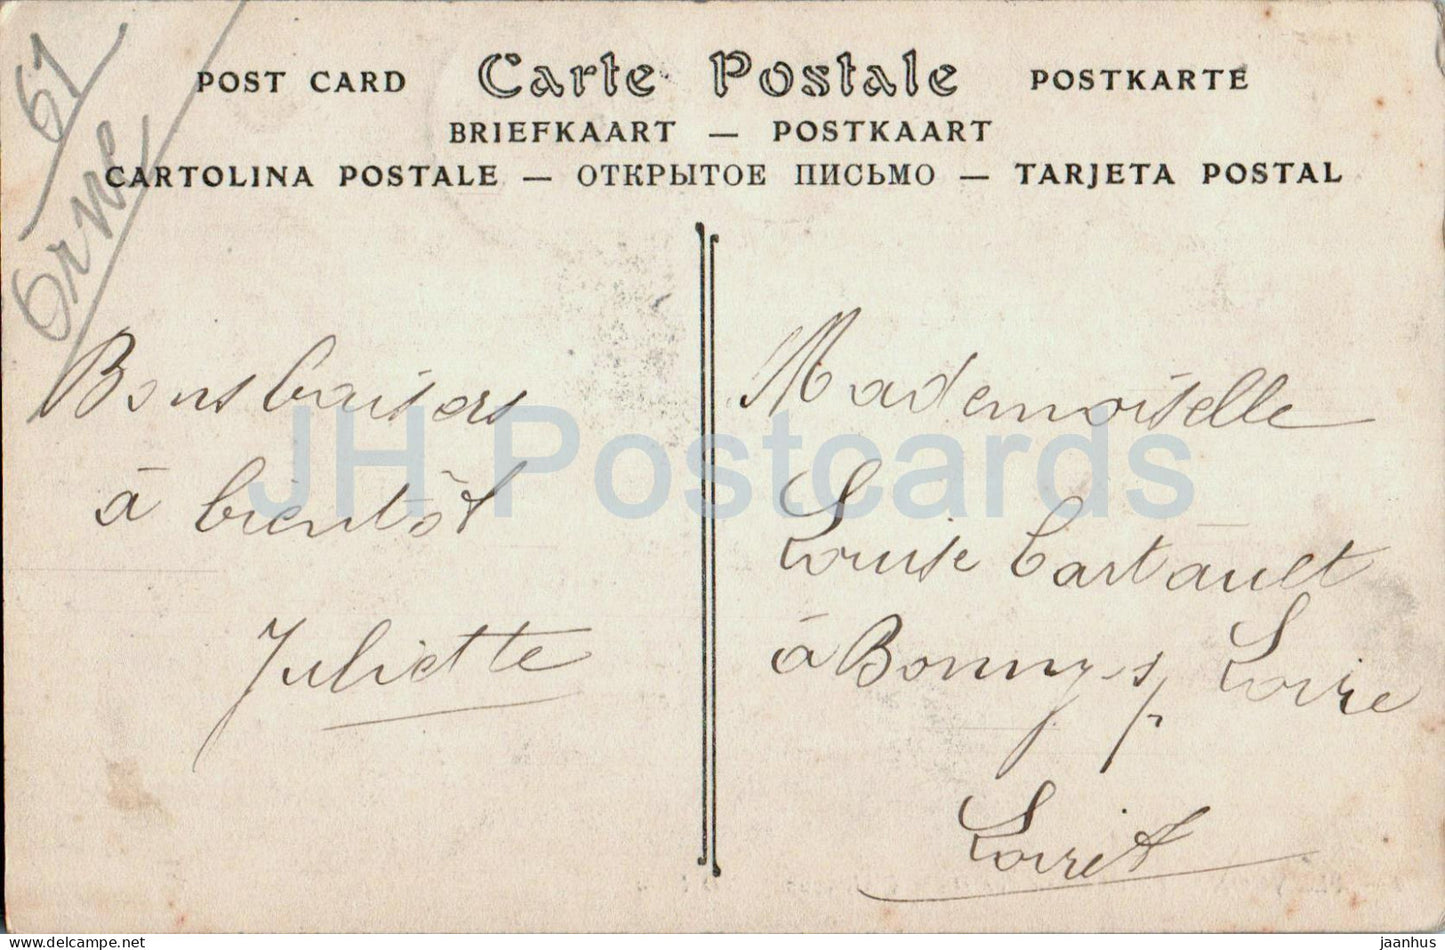 61
Orne
POST CARD Carte Postale POSTKARTE
BRIEFKAART — POSTKAART
CARTOLINA POSTALE — ОТКРЫТОЕ ПИСЬМО — TARJETA POSTAL
Bons baisers
à bientôt
Juliette
Mademoiselle
Louise Cartault
à Bonny s/ Loire
Loiret
JH Postcards
www.delcampe.net
jaanhus